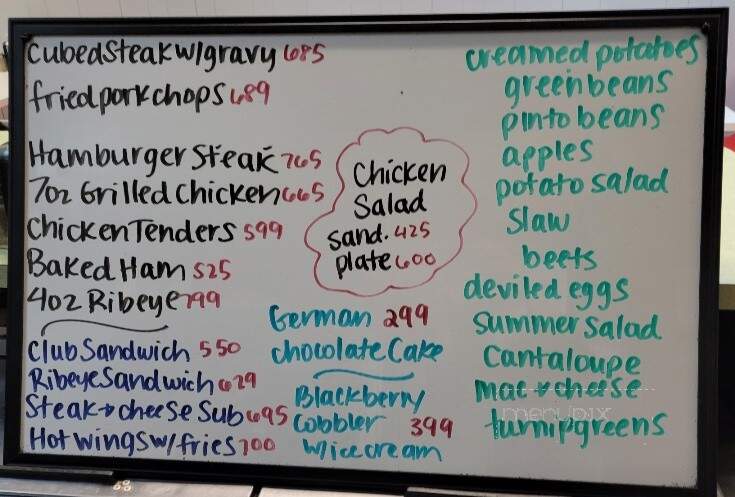 cubed steak w/gravy 685
fried pork chops 689
Hamburger Steak 765
7oz Grilled Chicken 665
Chicken Tenders 599
Baked Ham 525
4oz Ribeye 799
Club Sandwich 550
Ribeye Sandwich 629
Steak + cheese Sub 695
Hot wings w/ fries 700
Chicken
Salad
sand. 425
plate 600
German 299
chocolate Cake
Blackberry
Cobbler 399
w/ice cream
creamed potatoes
green beans
pinto beans
apples
potato salad
Slaw
beets
deviled eggs
summer salad
Cantaloupe
mac + cheese
turnip greens
menupix